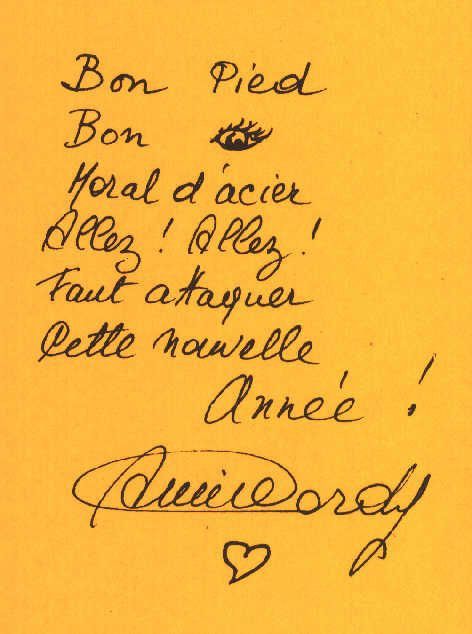 Bon Pied
Bon
Moral d'acier
Allez ! Allez !
Faut attaquer
Cette nouvelle
Année !
Annie Cordy